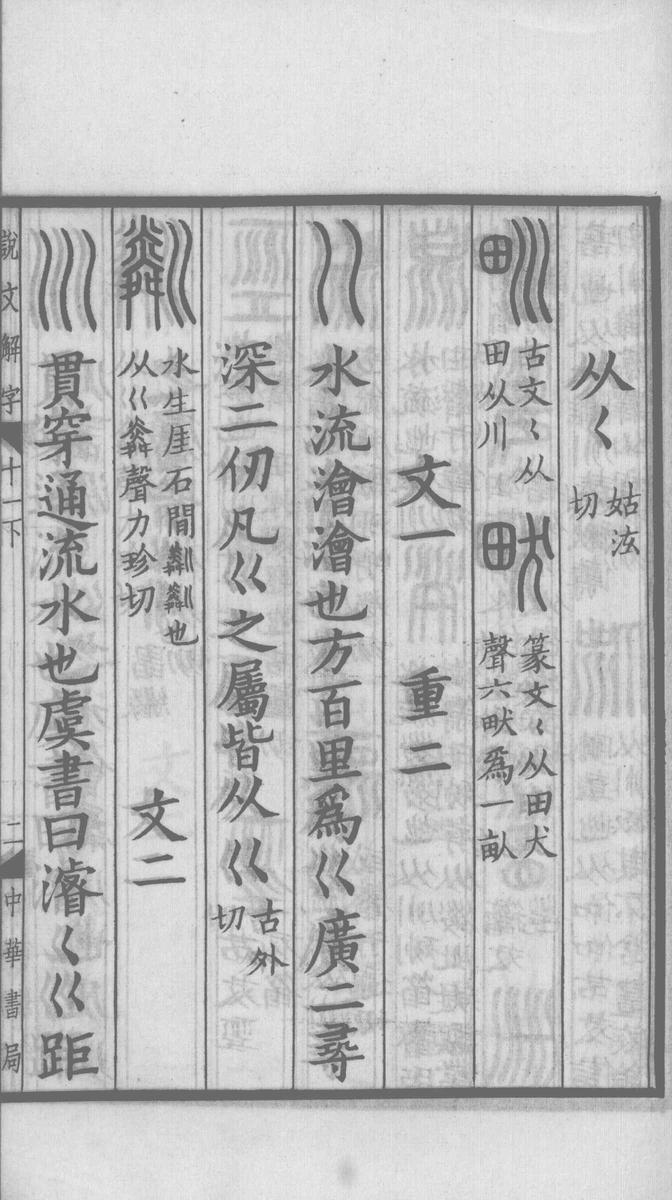 从〈 姑泫
切
甽 古文〈从
田从川
畎 篆文〈从田犬
聲六畎爲一畝
文一 重二
巜 水流澮澮也方百里爲巜廣二尋
深二仞凡巜之屬皆从巜 古外
切
粼 水生厓石閒粼粼也
从巜粦聲力珍切
文二
川 貫穿通流水也虞書曰濬〈巜距
說文解字 十一下 二 中華書局